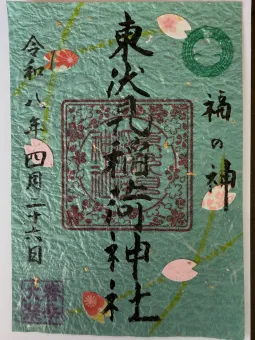 福の神
東伏見稲荷神社
令和八年四月二十六日